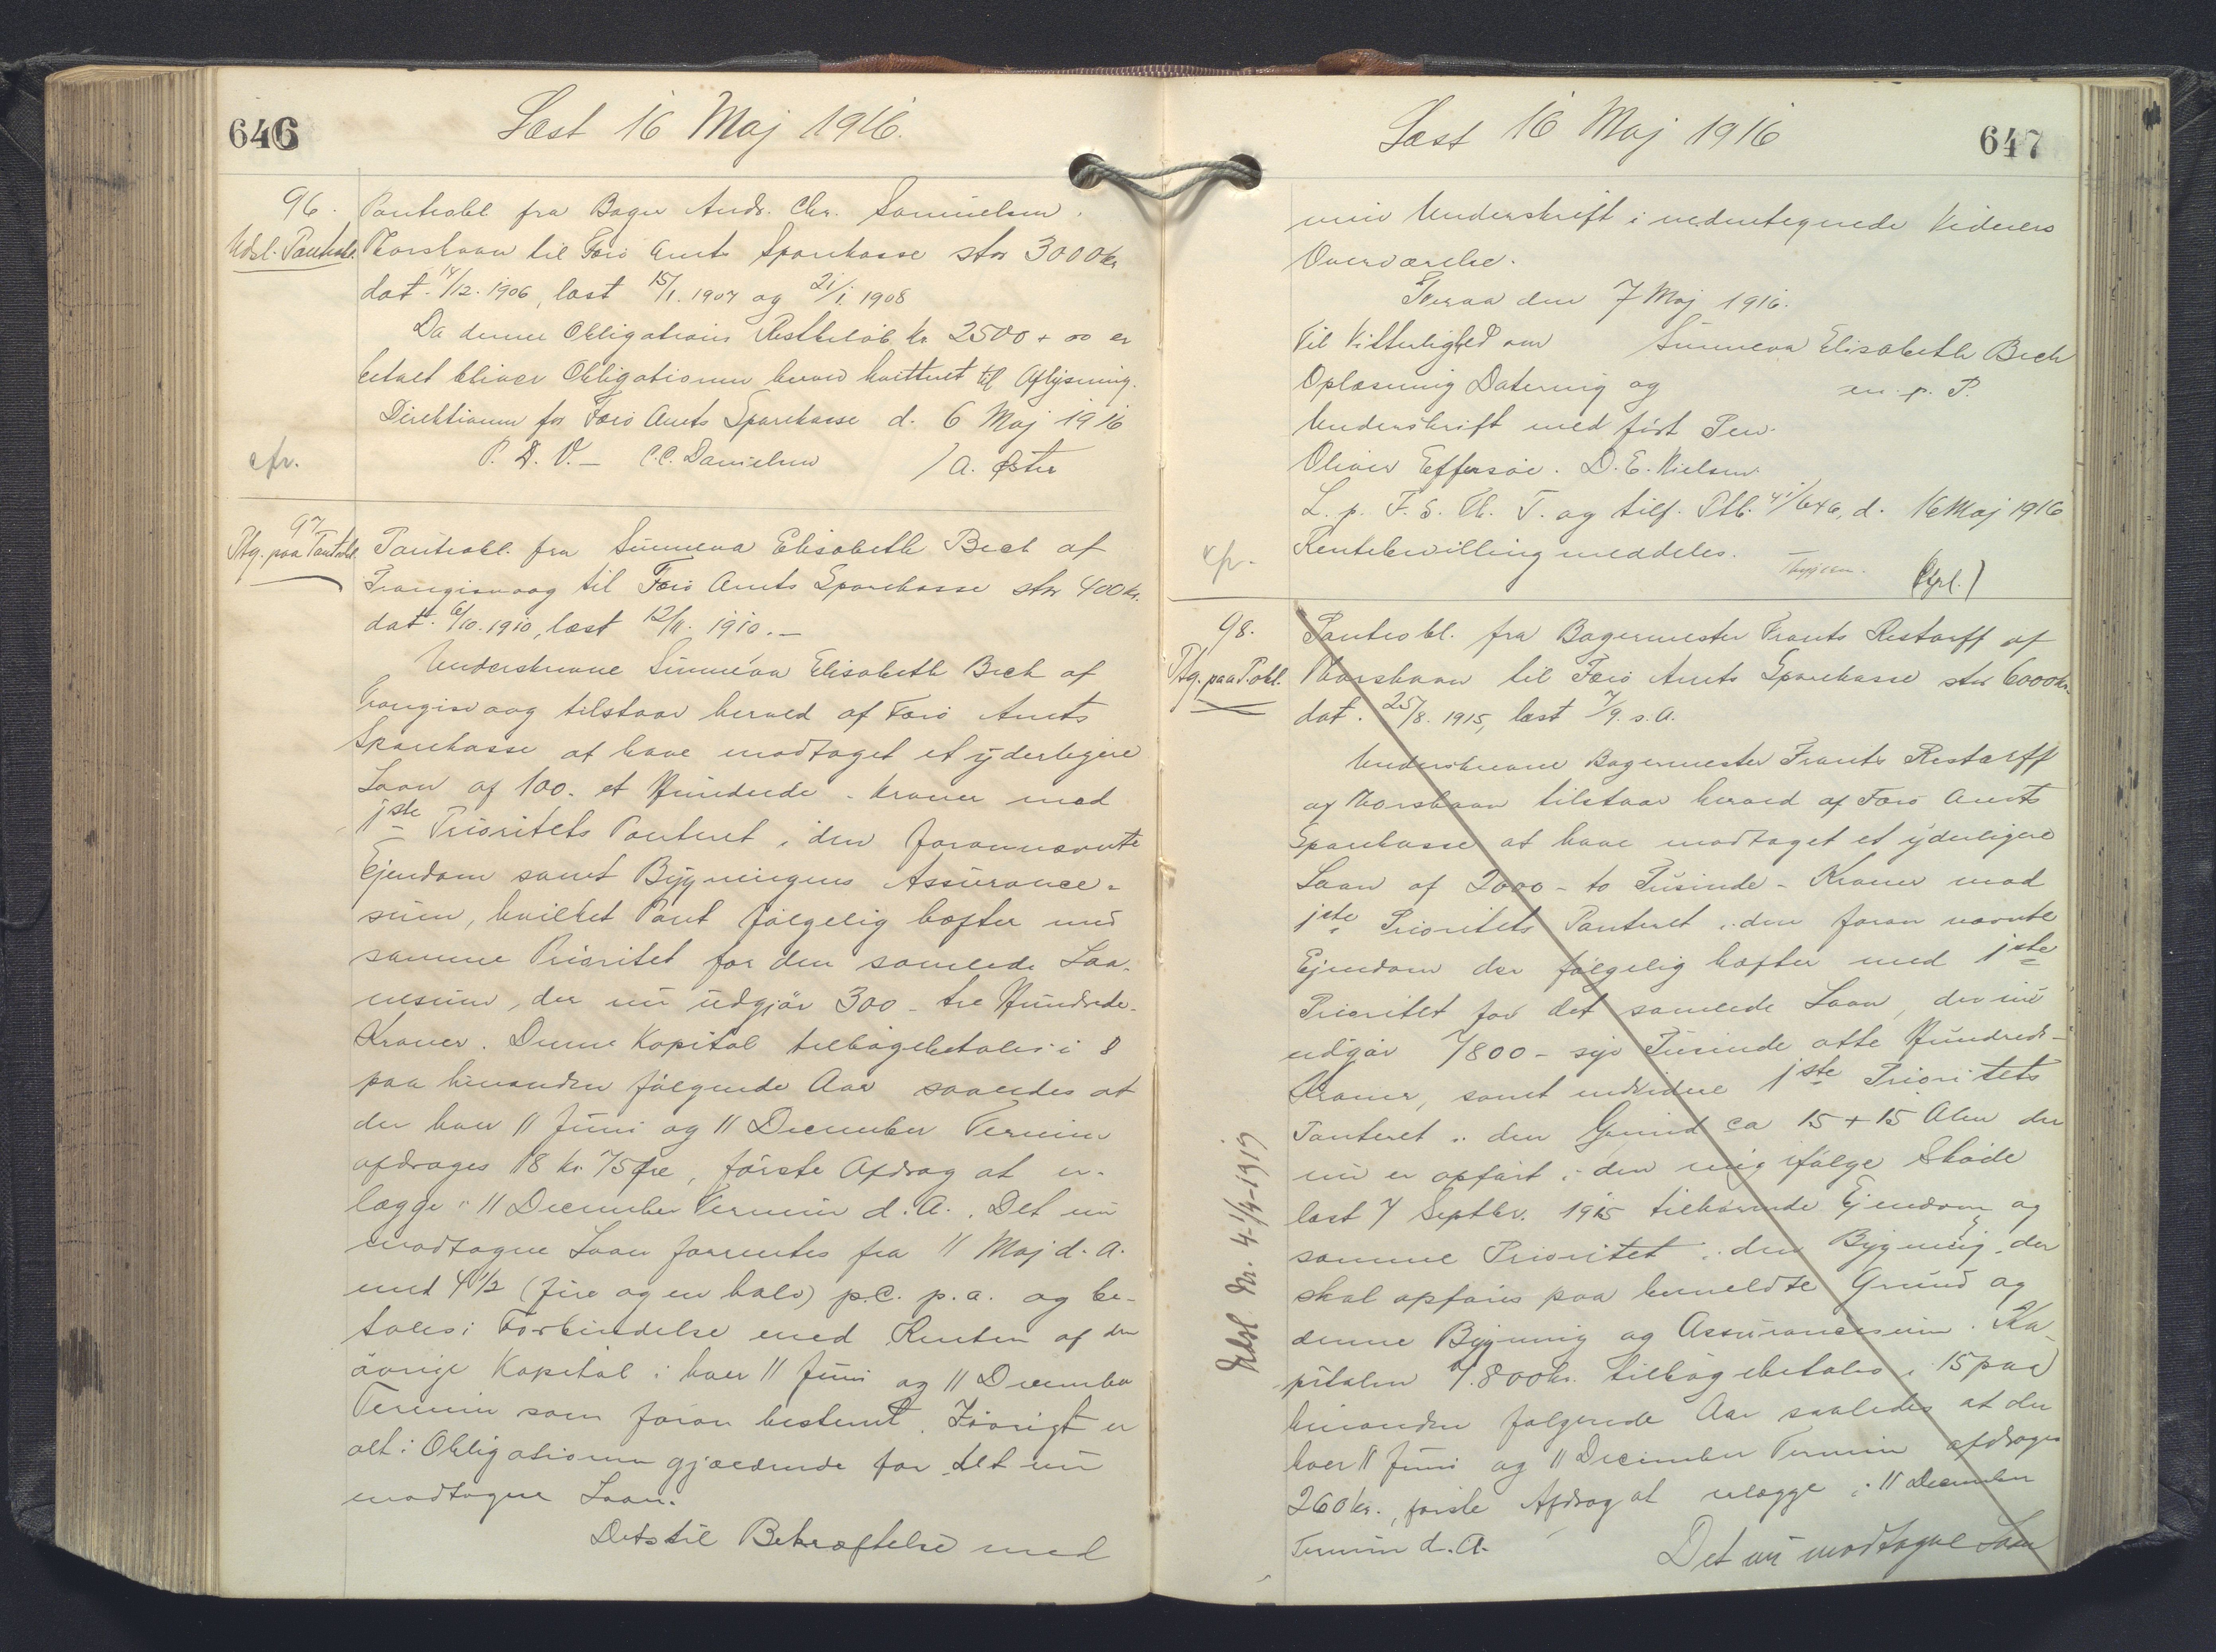 646
Læst 16 Maj 1916.
96.
Udsl. Pantobl.
Pantobl fra Bager Andr. Chr. Samuelsen,
Thorshavn til Færø Amts Sparekasse stor 3000 kr
dat. 14/12. 1906, læst 15/1. 1907 og 21/1. 1908
Da denne Obligations Restbeløb kr 2500 + 00 er
betalt bliver Obligationen herved kvitteret til Aflysning.
Direktionen for Færø Amts Sparekasse d. 6 Maj 1916
P. D. V. – C.C. Danielsen / A. Øster
cfr.
97
Ptg. paa Pantobl.
Pantobl. fra Sunneva Elisabeth Bech af
Trangisvaag til Færø Amts Sparekasse stor 400 kr.
dat. 6/10. 1910, læst 12/11. 1910. –
Underskrevne Sunneva Elisabeth Bech af
Trangisvaag tilstaar herved af Færø Amts
Sparekasse at have modtaget et yderligere
Laan af 100. et Hundrede - Kroner mod
1ste Prioritets Panteret i den forannævnte
Ejendom samt Bygningens Assurance-
sum, hvilket Pant følgelig hæfter med
samme Prioritet for den samlede Laa-
nesum, der nu udgjør 300 - tre Hundrede-
Kroner. Denne Kapital tilbagebetales i 8
paa hinanden følgende Aar saaledes at
der hver 11 Juni og 11 December Termin
afdrages 18 kr. 75 øre, første Afdrag at er-
lægge i 11 December Termin d. A. . Det nu
modtagne Laan forrentes fra 11 Maj d. A.
med 4 1/2 (fire og en halv) p.C. p.a. og be-
tales i Forbindelse med Renten af den
øvrige Kapital i hver 11 Juni og 11 December
Termin som foran bestemt. Iøvrigt er
alt i Obligationen gjældende for det nu
modtagne Laan.
Dets til Bekræftelse med
Læst 16 Maj 1916
647
min Underskrift i undertegnede Vidners
Overværelse.
Tveraa den 7 Maj 1916.
Til Vitterlighed om Sunneva Elisabeth Bech
Oplæsning Datering og m. p. P.
Underskrift med ført Pen.
Oliver Effersøe. D. E. Nielsen.
L. p. F. S. Th. T. og tilf. Ptb. 41/646, d. 16 Maj 1916
Rentebevilling meddeles. Thygesen. (Gpl.)
cfr.
98.
Ptg. paa P.obl.
Pantobl. fra Bagermester Frants Restorff af
Thorshavn til Færø Amts Sparekasse stor 6000 kr.
dat. 25/8. 1915, læst 7/9. s. A.
Underskrevne Bagermester Frants Restorff
af Thorshavn tilstaar herved af Færø Amts
Sparekasse at have modtaget et yderligere
Laan af 2000 - to Tusinde - Kroner mod
1ste Prioritets Panteret i den foran nævnte
Ejendom der følgelig hæfter med 1ste
Prioritet for det samlede Laan, der nu
udgør 7800 - syv Tusinde otte Hundrede -
Kroner, samt endvidere 1ste Prioritets
Panteret i den Grund ca 15 + 15 Alen der
nu er opført i den mig ifølge Skøde
læst 7 Septbr. 1915 tilhørende Ejendom og
samme Prioritet i den Bygning, der
skal opføres paa bemeldte Grund og
denne Bygning og Assurancesum. Ka-
pitalen 7.800 kr. tilbagebetales i 15 paa
hinanden følgende Aar saaledes at der
hver 11 Juni og 11 December Termin afdrages
260 kr., første Afdrag at erlægge i 11 December
Termin d. A.
Det nu modtagne Laan
Udsl. Nr. 4-1/4-1919